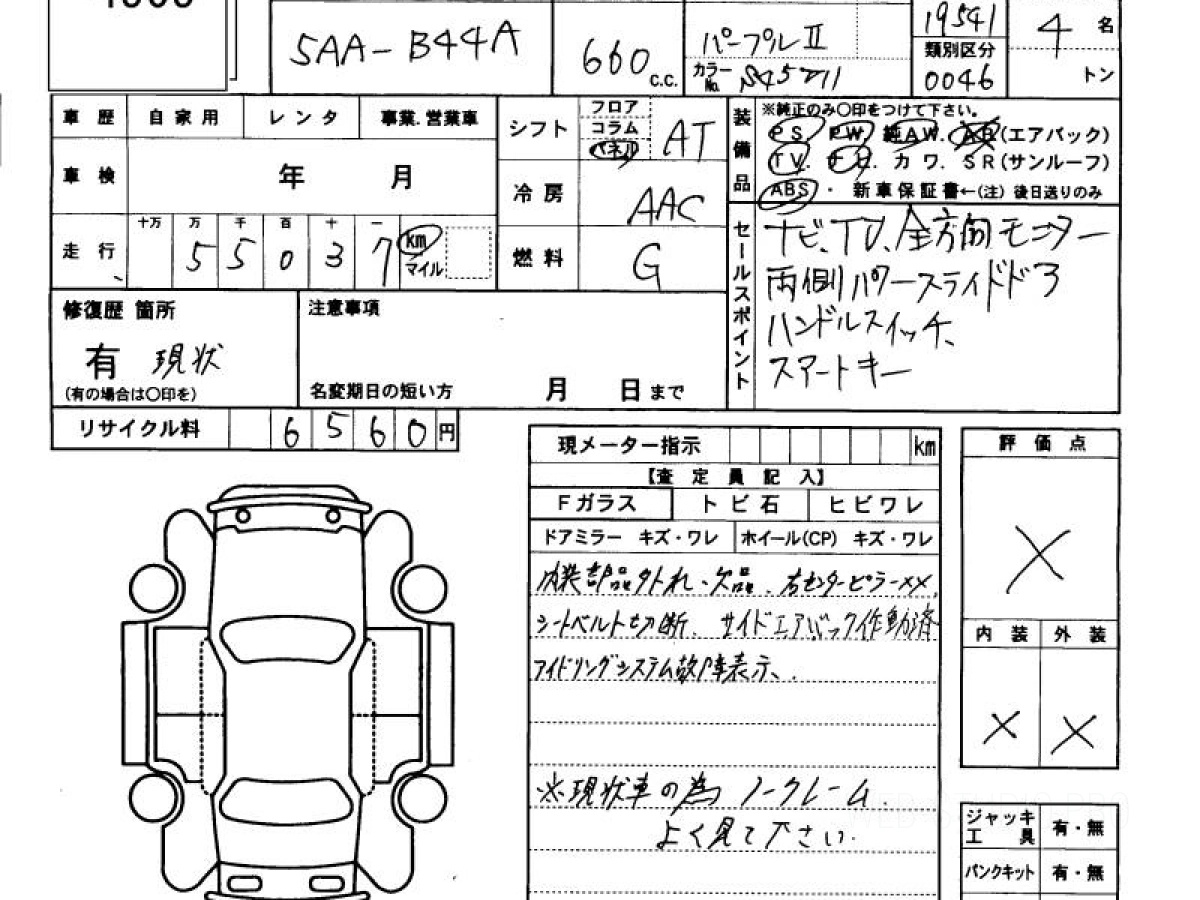 5AA-B44A
660 C.C.
パープルⅡ
カラーNo.
19541
類別区分
0046
4 名
トン
車歴 自家用 レンタ 事業.営業車
車検 年 月
十万 万 千 百 十 一
走行 5 5 0 3 7 km
マイル
シフト フロア コラム パネル AT
冷房 AAC
燃料 G
装備品
※純正のみ〇印をつけて下さい。
PS PW 純AW. AB(エアバック)
TV. ナビ. カワ. SR(サンルーフ)
ABS・ 新車保証書←(注) 後日送りのみ
セールスポイント
ナビ、TV、全方向モニター
両側パワースライドドア
ハンドルスイッチ、
スマートキー
修復歴 箇所
有 現状
(有の場合は〇印を)
注意事項
名変期日の短い方 月 日まで
リサイクル料 6 5 6 0 円
現メーター指示 km
【査定員記入】
Fガラス トビ石 ヒビワレ
ドアミラー キズ・ワレ ホイール(CP) キズ・ワレ
内装部品外れ・欠品、右センターピラーXX、
シートベルト切断、サイドエアバック作動済
アイドリングシステム故障表示、
※現状車の為 ノークレーム
よく見て下さい.
評価点
X
内装 外装
X X
ジャッキ工具 有・無
パンクキット 有・無